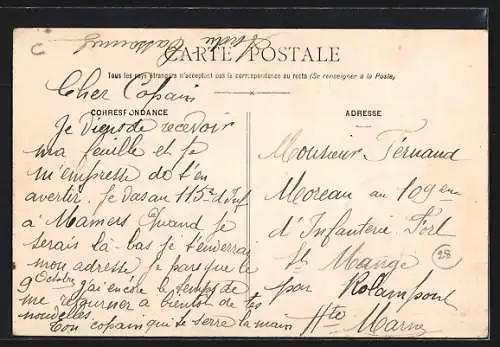 C
André Cassonnet
CARTE POSTALE
Tous les pays étrangers n'acceptent pas la correspondance au recto (Se renseigner à la Poste)
CORRESPONDANCE
Cher Copain
Je viens de recevoir
ma feuille et je
m'empresse de t'en
avertir. Je vas au 115e d'Inf
à Mamers Quand je
serais là-bas je t'enverrai
mon adresse je pars que le
9 Octobre j'ai encore le temps de
me retourner a bientôt de tes
nouvelles.
Ton copain qui te serre la main
ADRESSE
Monsieur Fernand
Moreau au 109eme
d'Infanterie Fort
St Mange
par Rolampont
Hte Marne
28